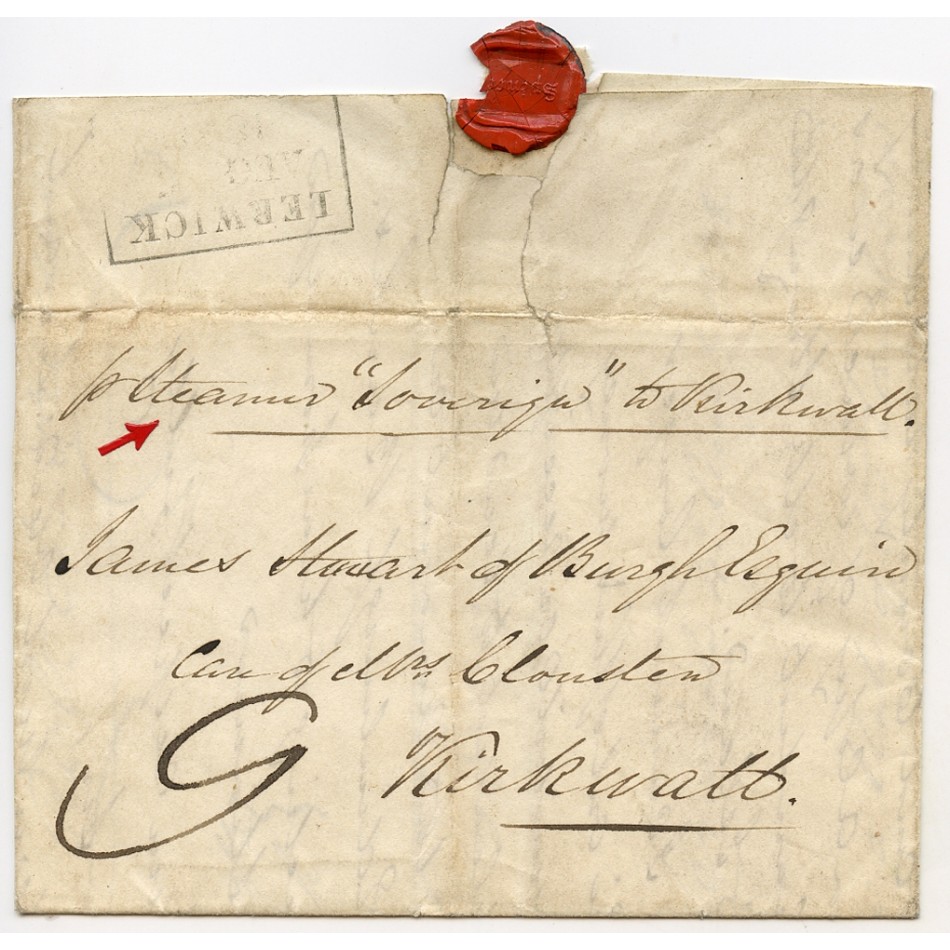 LERWICK
DEC
p Steamer "Soverign" to Kirkwall.
James Stewart of Burgh Esquire
Care of Mrs Clousten
9
Kirkwall.